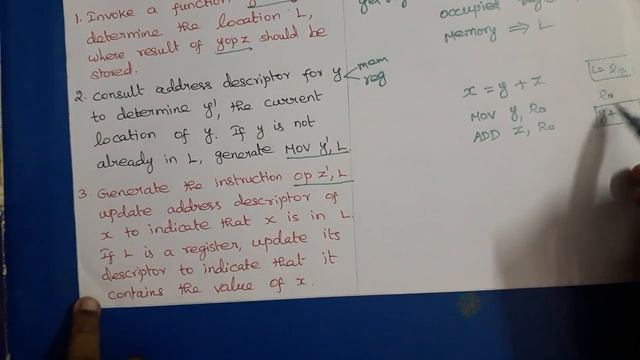 1. Invoke a function
determine the location L,
where result of yopz should be
stored.
2. consult address descriptor for y mem
reg
to determine y', the current
location of y. If y is not
already in L, generate Mov y', L
3. Generate the instruction op z', L
update address descriptor of
x to indicate that x is in L.
If L is a register, update its
descriptor to indicate that it
contains the value of x.
occupied
Memory ⇒ L
x = y + z
MOV y, R0
ADD Z, R0
L = R0
R0
y+